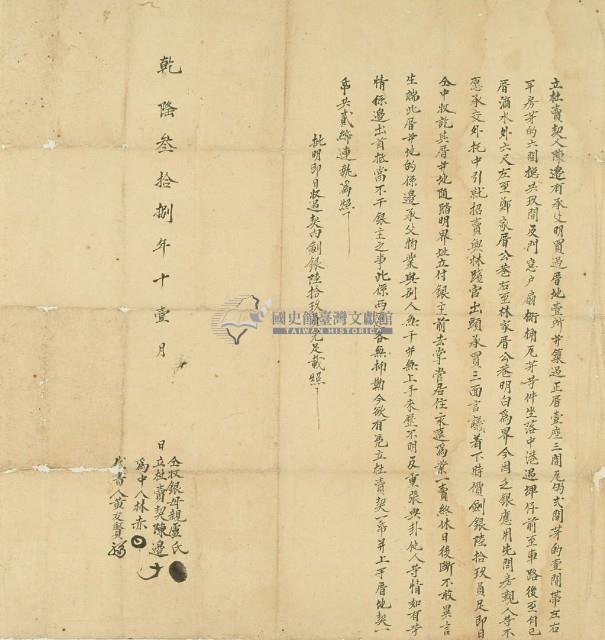 立杜賣契人陳邉有承父明買過厝地壹所并築過正厝壹座三間瓦的弍間茅的壹間帶左右
平房茅的六間摠共玖間及門窓户扇衛楠瓦茅等件坐落中港過埤仔前至車路後至自己
厝滴水外六尺左至鄭家厝公巷右至林家厝公巷明白為界今因乏銀應用先問房親人等不
愿承交外托中引就招賣與林隨宫出頭承買三面言議着下時價劍銀陸拾玖員足即日
仝中收訖其厝并地随踏明界址立付銀主前去掌管居住永遠為業一賣終休日後斷不敢異言
生端此厝并地的係邉承父物業與别人無干并無上手来歷不明及重張典卦他人等情如有等
情係邉出首抵當不干銀主之事此係兩愿各無抑勒今欲有凴立杜賣契一帋并上手厝地契一
帋共貳帋連執為照
批明即日收過契内劍銀陸拾玖員完足載照
乾隆叁拾捌年十壹月
日立杜賣契陳邉
仝收銀母親盧氏
為中人林赤
代書人黄文賢
國史館臺灣文獻館
TAIWAN HISTORICA